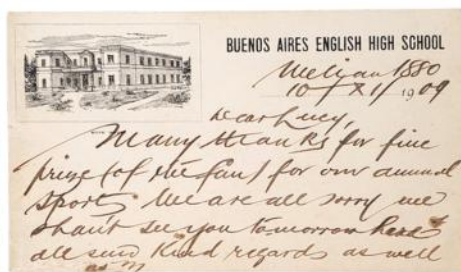 BUENOS AIRES ENGLISH HIGH SCHOOL
Melian 1880
10 / XI / 1909
Dear Lucy,
Many thanks for fine
prize (of the fan) for our annual
sports. We are all sorry we
shan't see you tomorrow here &
all send kind regards as well
as m